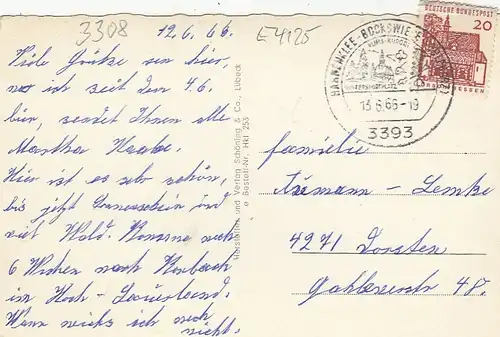 3308
12.6.66.
E 4125
Viele Grüße von hier,
wo ich seit dem 4.6.
bin, sendet Ihnen alle
Martha
Hier ist es sehr schön,
bis jetzt Sonnenschein und
viel Wald. Komme nach
6 Wochen nach Korbach
im Hoch-Sauerland.
Wann weiß ich noch
nicht.
Hersteller und Verlag Schöning & Co., Lübeck
Bestell-Nr. Hkl 253
DEUTSCHE BUNDESPOST
20
HESSEN
HAHNENKLEE-BOCKSWIESE
13.6.66-19
3393
Familie
Lemke
4271 Dorsten
48.